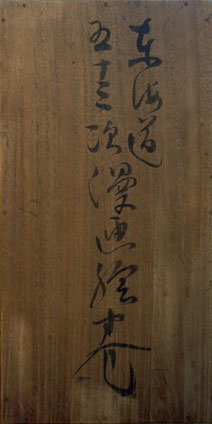 東海道
五十三次漫画絵巻